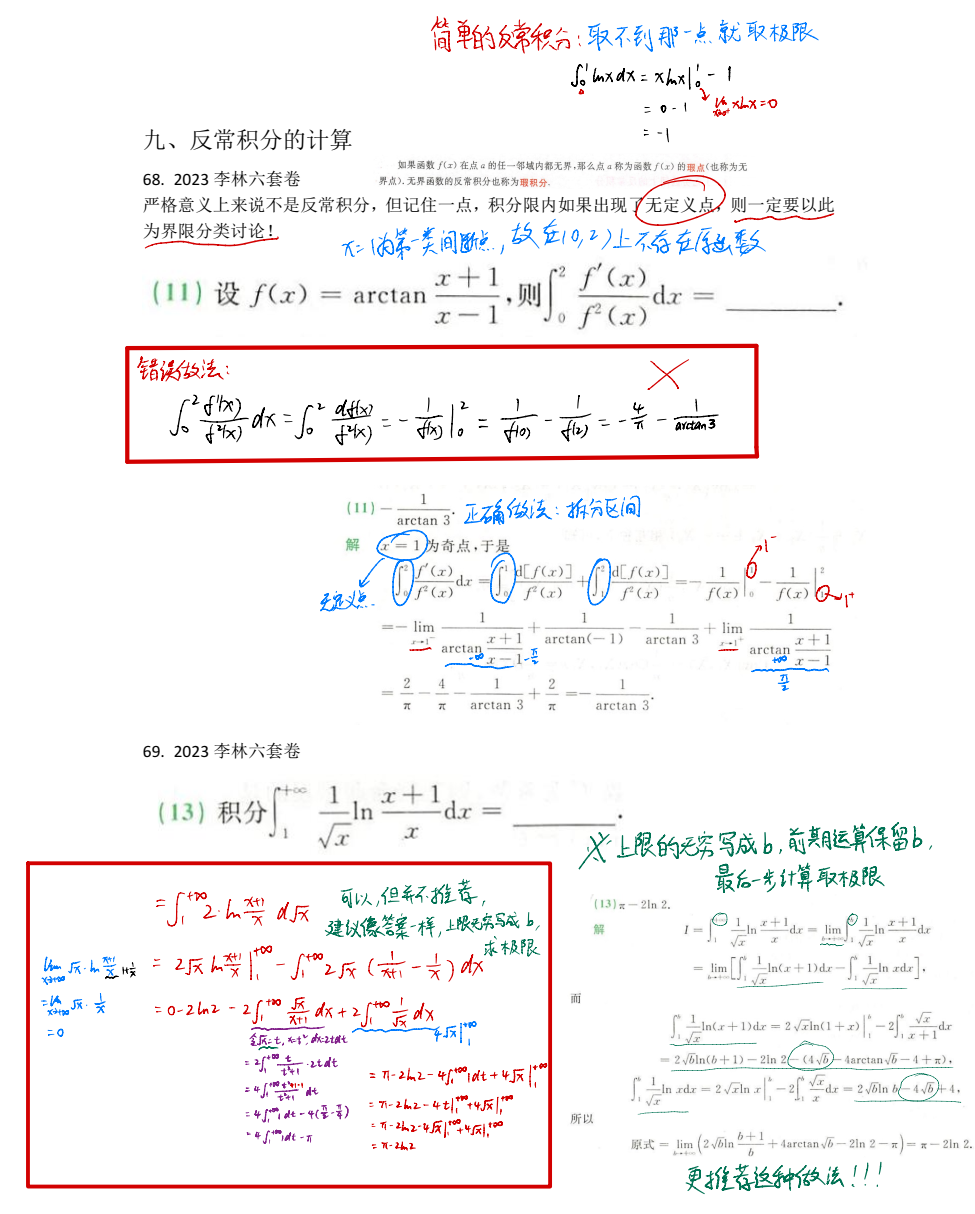 简单的反常积分：取不到那一点就取极限
∫₀¹ lnxdx = xlnx|₀¹ - 1
= 0 - 1 lim x→0⁺ xlnx=0
= -1
九、反常积分的计算
如果函数 f(x) 在点 a 的任一邻域内都无界，那么点 a 称为函数 f(x) 的瑕点（也称为无
界点）．无界函数的反常积分也称为瑕积分．
68. 2023 李林六套卷
严格意义上来说不是反常积分，但记住一点，积分限内如果出现了无定义点，则一定要以此
为界限分类讨论！
x=1为第一类间断点，故在(0,2)上不存在原函数
(11) 设 f(x) = arctan (x+1)/(x-1)，则∫₀² f′(x)/f²(x) dx = ______.
错误做法：
∫₀² f′(x)/f²(x) dx = ∫₀² df(x)/f²(x) = - 1/f(x) |₀² = 1/f(0) - 1/f(2) = - 4/π - 1/arctan3
(11) - 1/arctan 3. 正确做法：拆分区间
解 x = 1 为奇点，于是
1⁻
∫₀² f′(x)/f²(x) dx = ∫₀¹ d[f(x)]/f²(x) + ∫₁² d[f(x)]/f²(x) = - 1/f(x) |₀¹ - 1/f(x) |₁²
无定义点 1⁺
= - lim x→1⁻ 1/(arctan (x+1)/(x-1)) + 1/arctan(-1) - 1/arctan 3 + lim x→1⁺ 1/(arctan (x+1)/(x-1))
-∞ -π/2 +∞ π/2
= 2/π - 4/π - 1/arctan 3 + 2/π = - 1/arctan 3.
69. 2023 李林六套卷
(13) 积分∫₁^{+∞} 1/√x ln (x+1)/x dx = ______.
※ 上限的无穷写成b，前期运算保留b，
最后一步计算取极限
= ∫₁^{+∞} 2·ln (x+1)/x d√x
可以，但并不推荐，
建议像答案一样，上限无穷写成b，
求极限
= 2√x ln (x+1)/x |₁^{+∞} - ∫₁^{+∞} 2√x (1/(x+1) - 1/x) dx
lim x→+∞ √x·ln (x+1)/x 1+1/x
= lim x→+∞ √x · 1/x
= 0
= 0-2ln2 - 2∫₁^{+∞} √x/(x+1) dx + 2∫₁^{+∞} 1/√x dx
4√x|₁^{+∞}
令√x=t, x=t², dx=2tdt
= 2∫₁^{+∞} t/(t²+1) ·2tdt
= 4∫₁^{+∞} (t²+1-1)/(t²+1) dt
= 4∫₁^{+∞} 1 dt - 4(π/2 - π/4)
= 4∫₁^{+∞} 1dt - π
= π-2ln2 - 4∫₁^{+∞} 1dt + 4√x|₁^{+∞}
= π-2ln2 - 4t|₁^{+∞} + 4√x|₁^{+∞}
= π-2ln2-4√x|₁^{+∞} + 4√x|₁^{+∞}
= π-2ln2
(13) π - 2ln 2.
解 I = ∫₁^{+∞} 1/√x ln (x+1)/x dx = lim b→+∞ ∫₁^b 1/√x ln (x+1)/x dx
= lim b→+∞ [∫₁^b 1/√x ln(x+1)dx - ∫₁^b 1/√x ln xdx],
而
∫₁^b 1/√x ln(x+1)dx = 2√x ln(1+x)|₁^b - 2∫₁^b √x/(x+1) dx
= 2√b ln(b+1) - 2ln 2 - (4√b - 4arctan√b - 4 + π),
∫₁^b 1/√x ln xdx = 2√x ln x|₁^b - 2∫₁^b √x/x dx = 2√b ln b - 4√b + 4,
所以
原式 = lim b→+∞ (2√b ln (b+1)/b + 4arctan√b - 2ln 2 - π) = π - 2ln 2.
更推荐这种做法！！！